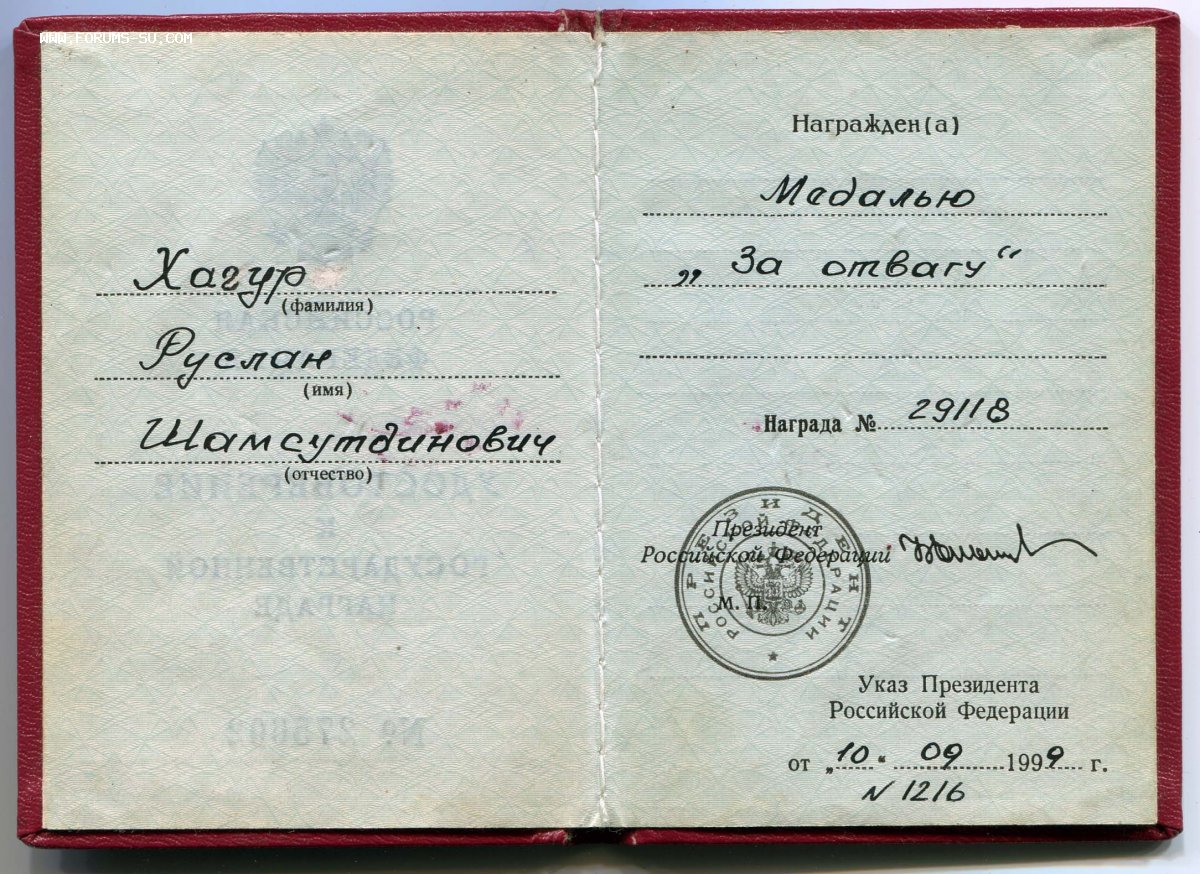 WWW.FORUMS-SU.COM
Хагур
(фамилия)
Руслан
(имя)
Шамсутдинович
(отчество)
Награжден(а)
Медалью
„За отвагу“
Награда № 29118
ПРЕЗИДЕНТ
РОССИЙСКОЙ ФЕДЕРАЦИИ
Президент
Российской Федерации
М. П.
Указ Президента
Российской Федерации
от „10“ 09 1999 г.
N 1216